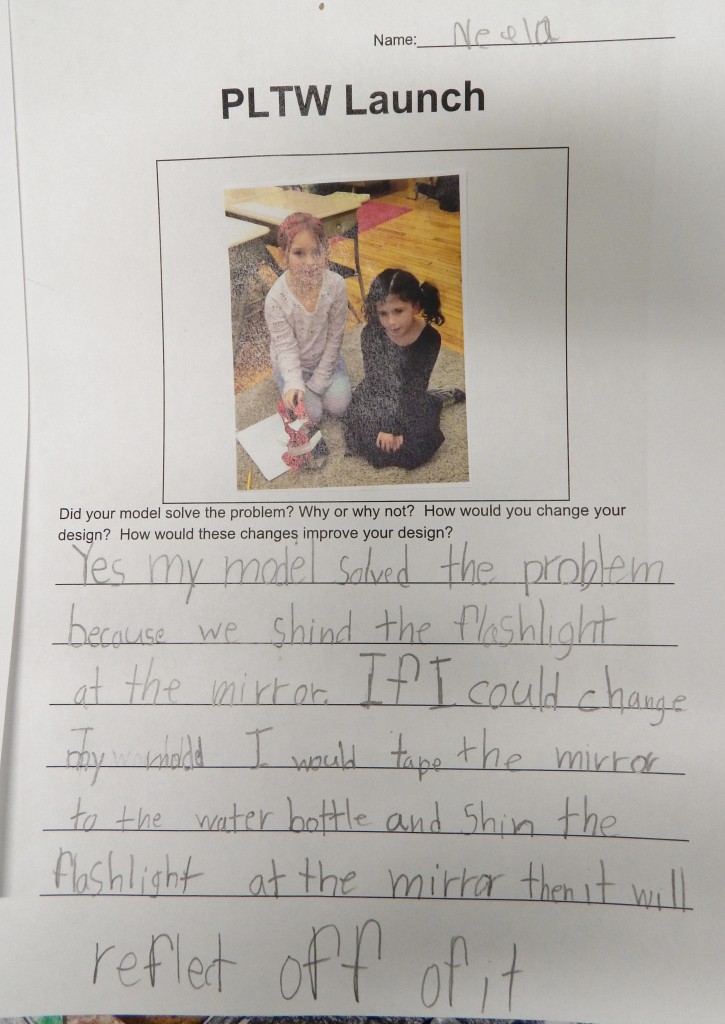 Name: Neela
PLTW Launch
Did your model solve the problem? Why or why not? How would you change your
design? How would these changes improve your design?
Yes my model solved the problem
because we shind the flashlight
at the mirror. If I could change
my I would tape the mirror
to the water bottle and Shin the
flashlight at the mirror then it will
reflect off of it